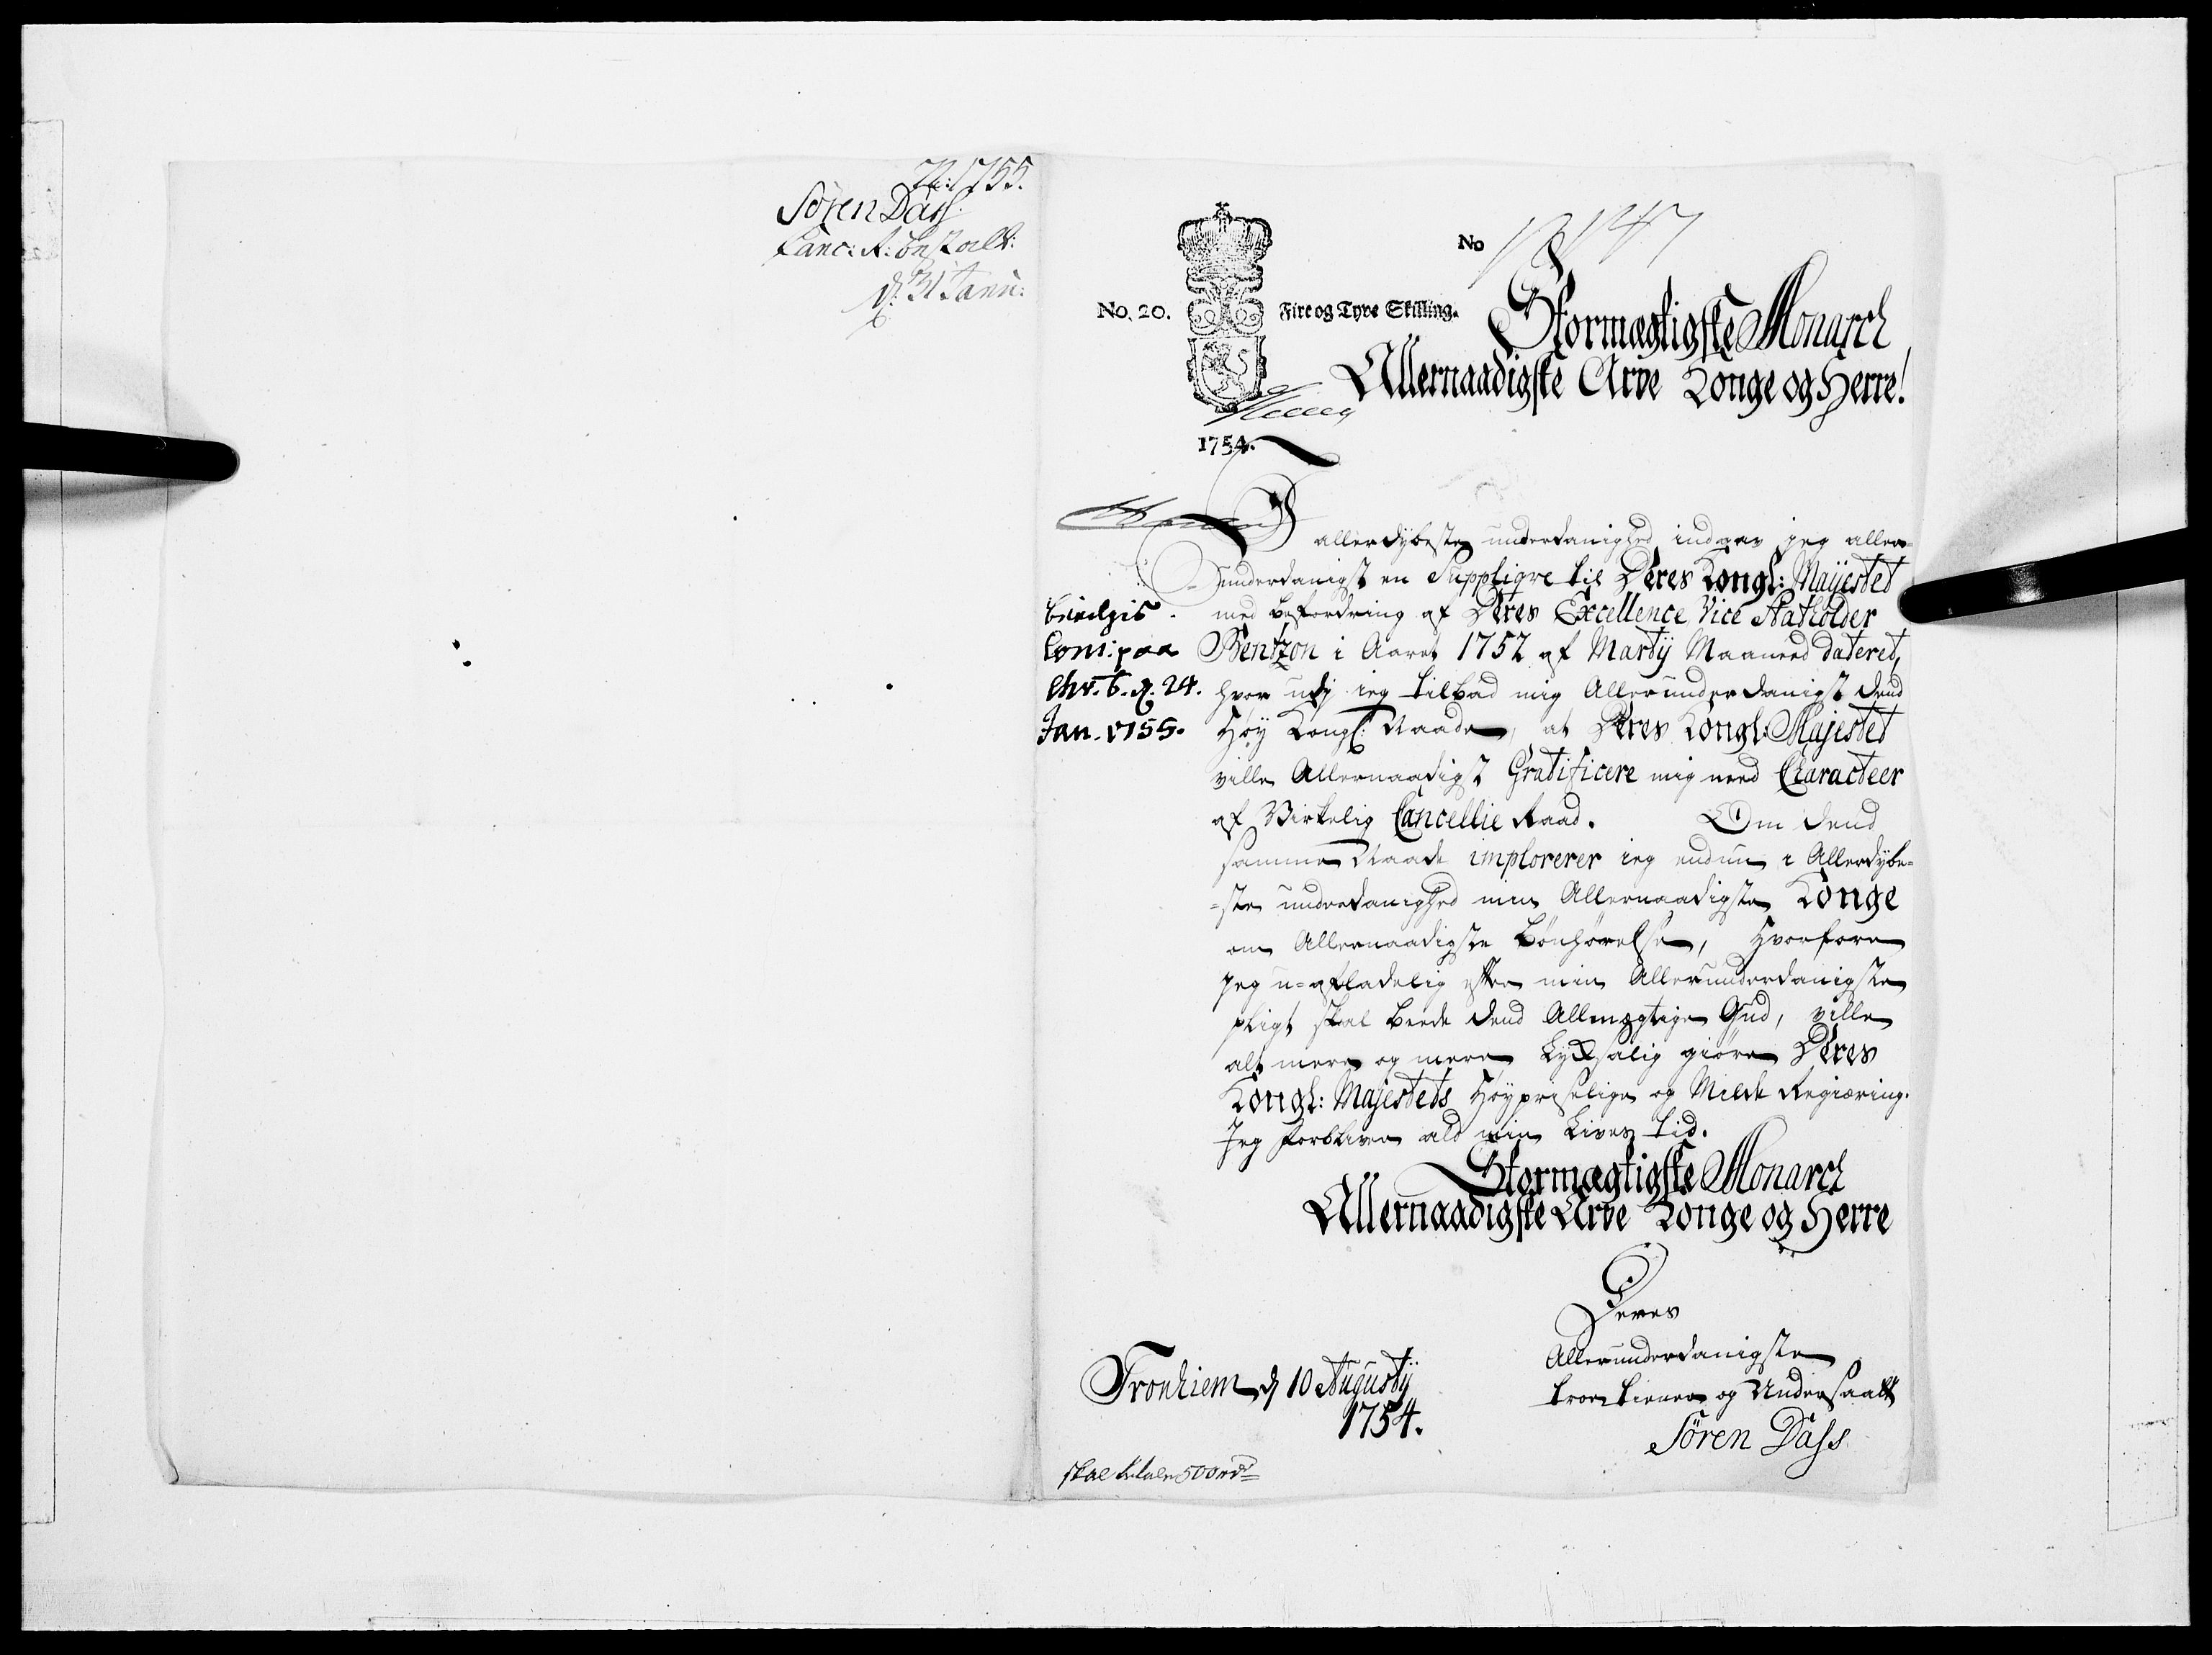 72: 1755.
Sören Dass
Canc: R: bestall:
d: 31 Janu:
No
No. 20.
Fire og Tyve Skilling.
1754.
Stormægtigste Monarch
Allernaadigste Arve Konge og Herre!
I allerdybeste underdanighed indgav jeg aller-
underdanigst en Supplique til Deres Kongl: Mayestet
med befordring af Deres Excellence Vice Statholder
Bentzon i Aaret 1752 af Martÿ Maaned dateret,
hvor udj ieg tilbad mig Allerunderdanigst dend
Høy Kongl: Naade, at Deres Kongl: Majestet
ville Allernaadigst Gratificere mig med Characteer
af Virkelig Cancellie Raad. Om dend
samme Naade implorerer ieg endnu i Allerdybe-
-ste underdanighed min Allernaadigste Konge
om Allernaadigste Bønhørelse, Hvorfore
jeg u-afladelig efter min Allerunderdanigste
pligt skal beede dend Allmægtige Gud, ville
alt mere og mere Lyksalig giøre Deres
Kongl: Majestets Høyprisselige og Milde Regiæring.
Jeg forbliver ald min Lives tid.
Stormægtigste Monarch
Allernaadigste Arve Konge og Herre
bevilges
Conf: paa
Chr. b. d. 24.
Jan. 1755.
Deres
Allerunderdanigste
troe tiener og Undersaatt
Sören Dass
Tronhiem d 10 Augustÿ
1754.
skal betale 500 rdr